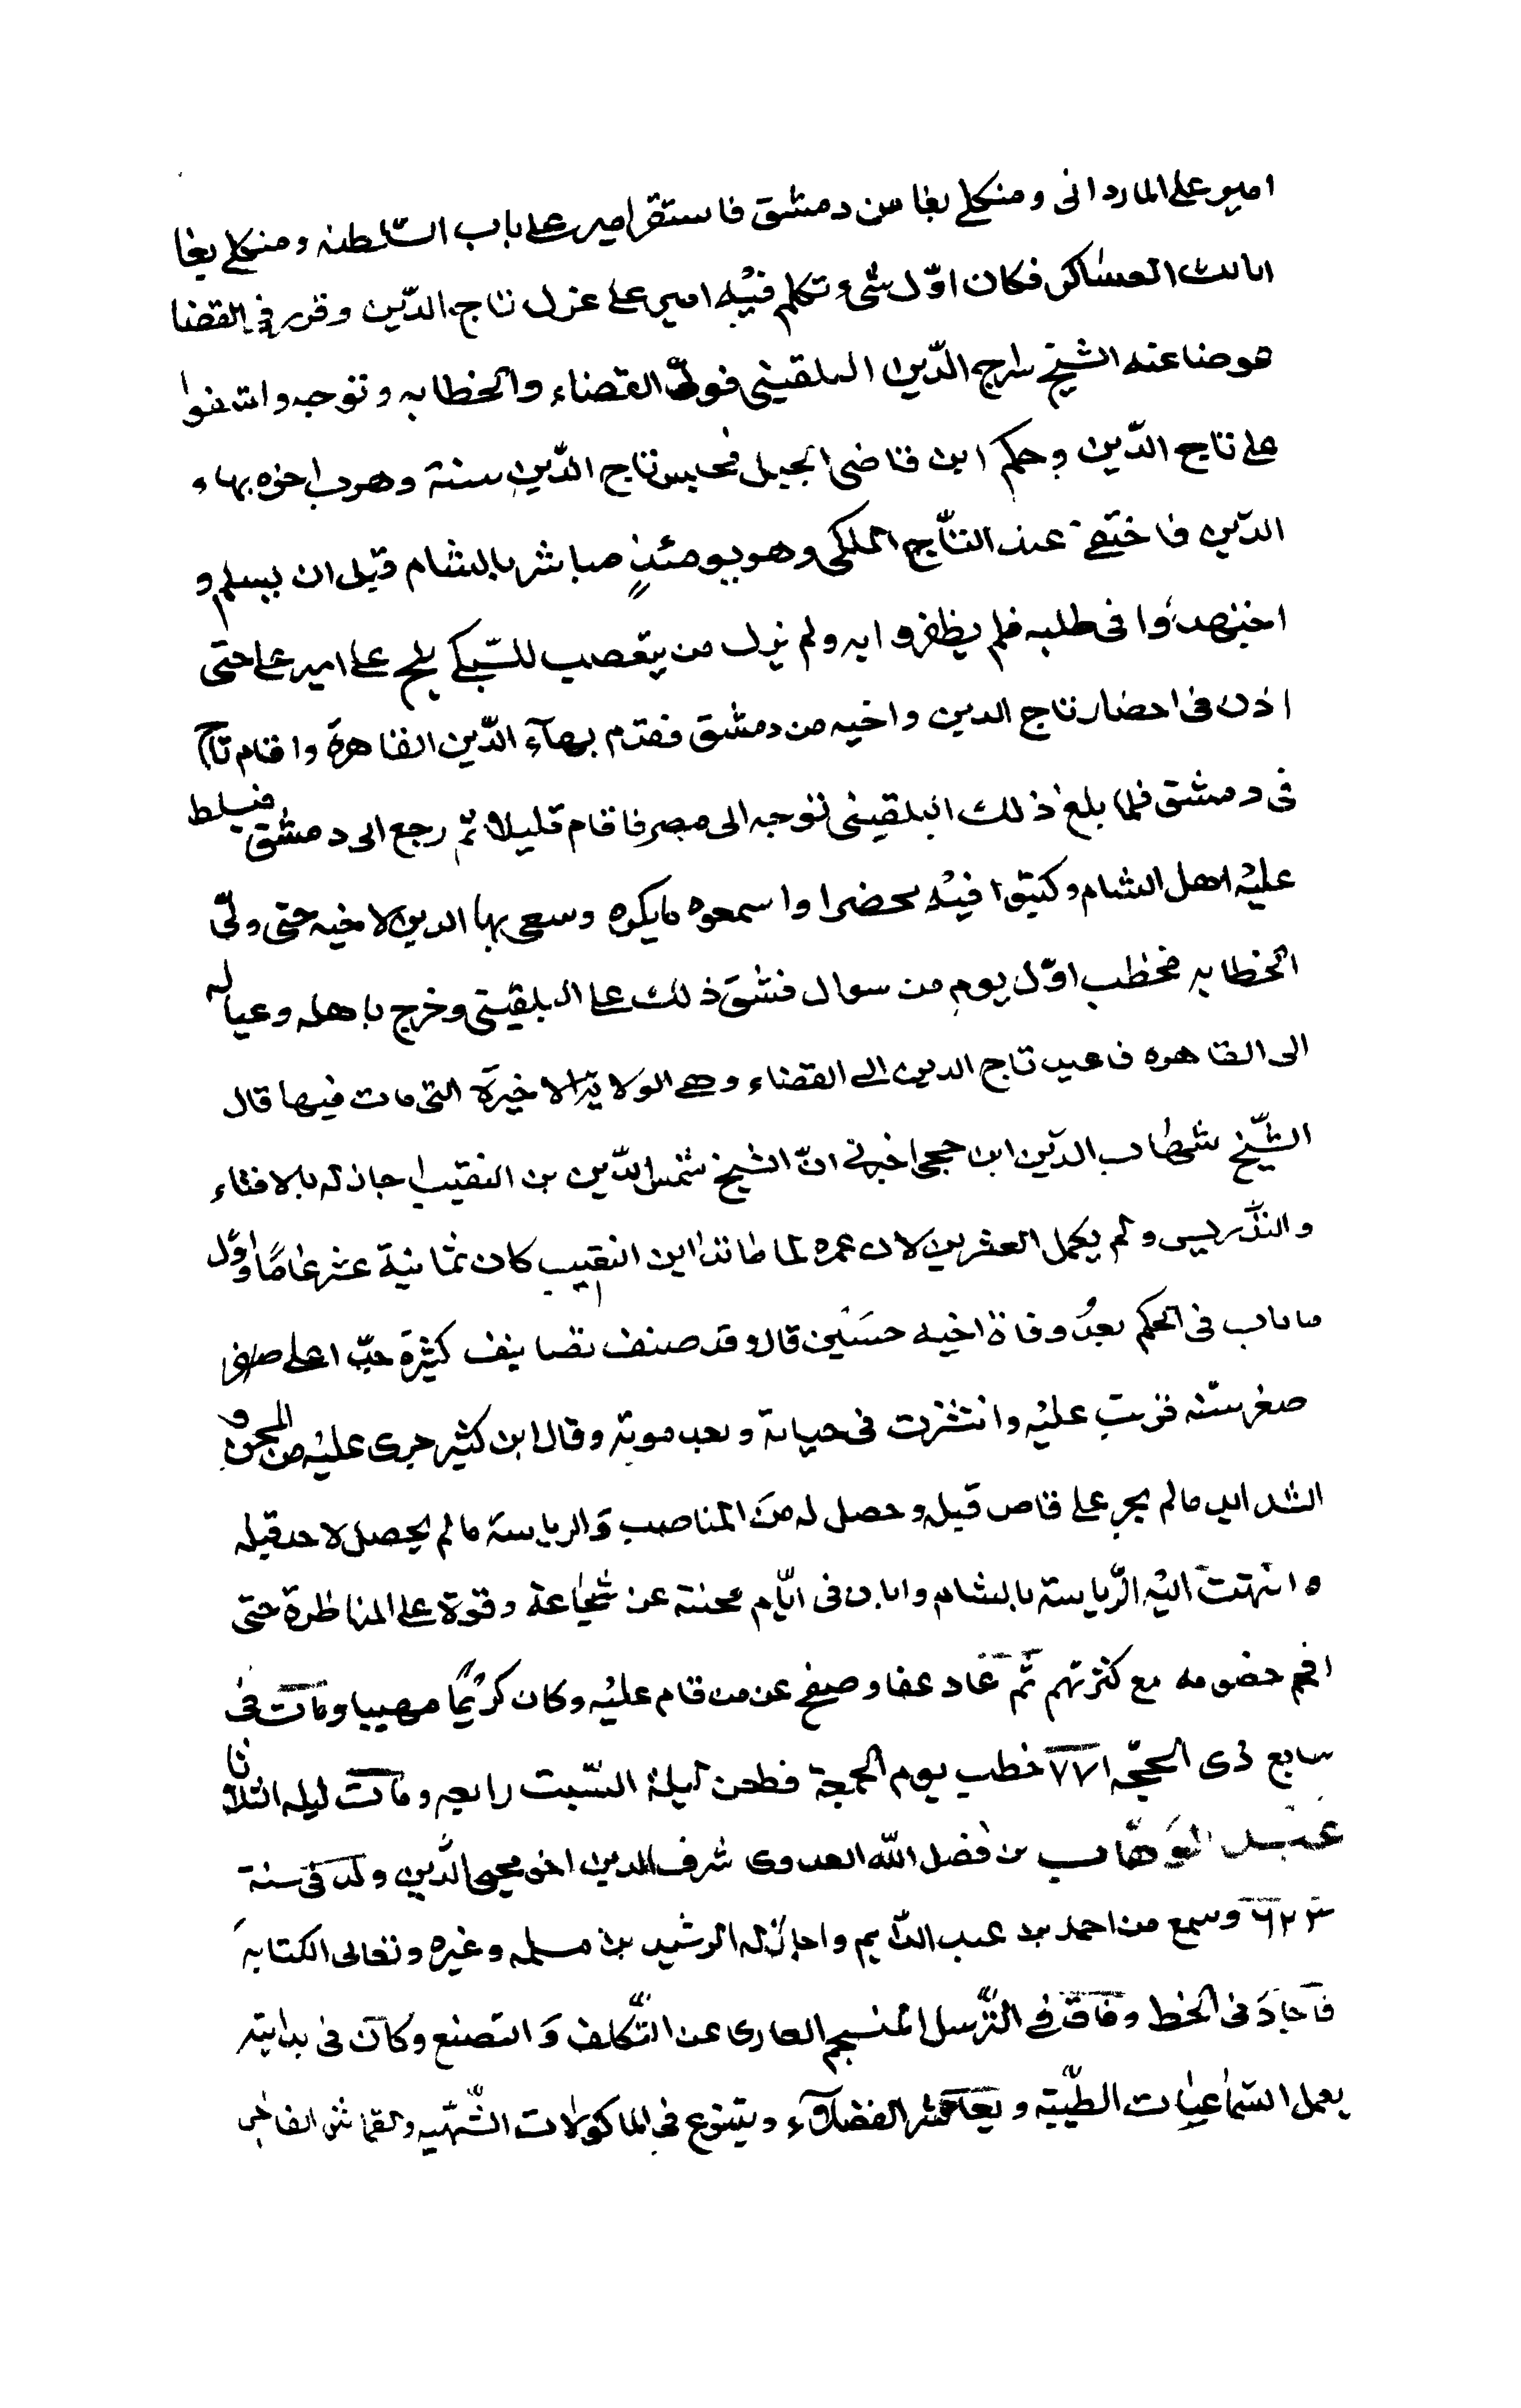 امير على الماردانى ومنكلى بغا من دمشق فاستقر امير على باب السلطنه ومنكلى بغا
اتابك العساكر فكان اوّل شىء تكلم فيه امير على عزل تاج الدّين وقرر فى القضا
عوضا عنه الشيخ سراج الدّين البلقينى فولّى القضاء والخطابه وتوجه
على تاج الدّين وحكم ابن قاضى الجبل فحبس تاج الدّين سنة وهرب اخوه بهاء
الدّين فاختفى عند التّاج الملكى وهو يومئذٍ مباشر بالشام قبل ان يسلم و
اجتهدوا فى طلبه فلم يظفروا به ولم يزل من يتعصب للسّبكى يلح على امير على حتى
اذن فى احضار تاج الدين واخيه من دمشق فقدم بهآء الدّين القاهرة واقام تاج
فى دمشق فلما بلغ ذلك البلقينى توجه الى مصر فاقام قليلا ثمّ رجع الى دمشق فسلط
عليه اهل الشام وكتبوا فيه محضرا واسمعوه مايكره وسعى بها الدين لاخيه حتى ولّى
الخطابه فخطب اوّل يوم من سوال فشقّ ذلك على البلقينى وخرج باهله وعياله
الى القاهره فاعيد تاج الدين الى القضاء وهى الولاية الاخيرة التى مات فيها قال
الشّيخ شهاب الدّين ابن حجى اخبرنى انّ الشيخ شمس الدّين بن النقيب اجاز له بالافتاء
والتّدريس ولم يكمل العشرين لان عمره لما مات ابن النقيب كان ثمانية عشر عامًا واوّل
ما ناب فى الحكم بعد وفاة اخيه حسين قال وقد صنف تصانيف كثيرة جدّا على
صغر سنّه قرئت عليه وانتشرت فى حياته وبعد موته وقال ابن كثير جرى عليه من المحن و
الشدايد مالم يجر على قاض قبله وحصل له من المناصب والرياسة مالم يحصل لاحد قبله
وانتهت اليه الرّياسة بالشام وابان فى ايّام محنته عن شجاعة وقوة على المناظرة حتى
افحم خصومه مع كثرتهم ثمّ عاد عفا وصفح عن من قام عليه وكان كريمًا مهيبا ومات فى
سابع ذى الحجّه ٧٧١ خطب يوم الجمعة فطعن ليلة السّبت رابعه ومات ليله الثلاثا
عبد الوهّاب بن فضل الله العدوى شرف الدين اخو محيى الدّين ولد فى سنة
٦٢٣ وسمع من احمد بن عبد الدّايم واجاز له الرشيد بن مسلمه وغيره وتعانى الكتابه
فاجاد فى الخط وفاق فى التّرسل المنسجم العارى عن التّكلف والتصنع وكان فى بدايته
يعمل السّماعيات الطّيّبه ويعاشر الفضلآء ويتنوع فى الماكولات الشّهيّه والقماش الفاخر